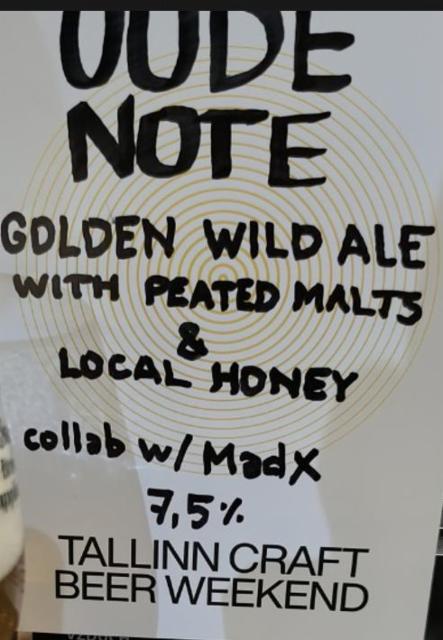 OUDE
NOTE
GOLDEN WILD ALE
WITH PEATED MALTS
&
LOCAL HONEY
collab w/ MadX
7,5%
TALLINN CRAFT
BEER WEEKEND